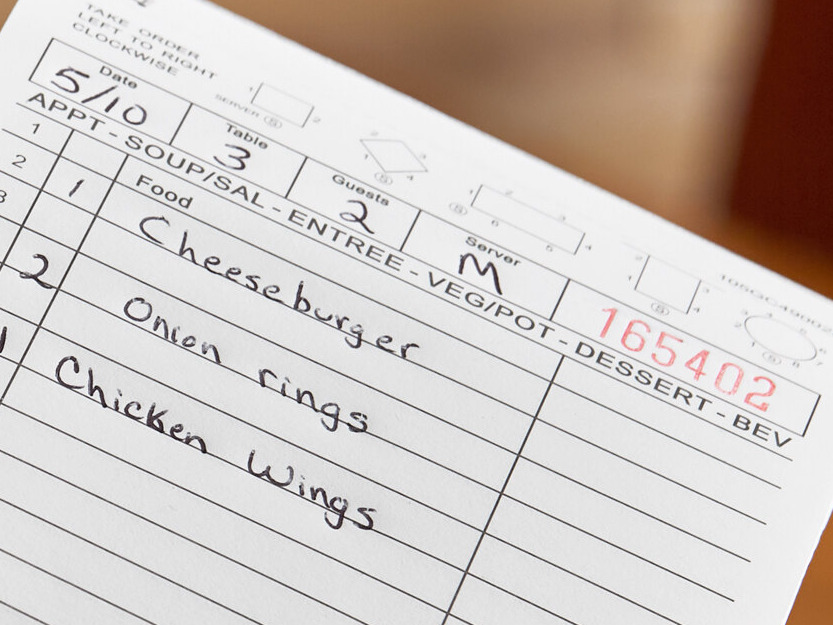 TAKE ORDER
LEFT TO RIGHT
CLOCKWISE
SERVER
Date Table Guests Server
5/10 3 2 M 165402
APPT - SOUP/SAL - ENTREE - VEG/POT - DESSERT - BEV
Food
1 1 Cheeseburger
2 2 Onion rings
3 1 Chicken Wings